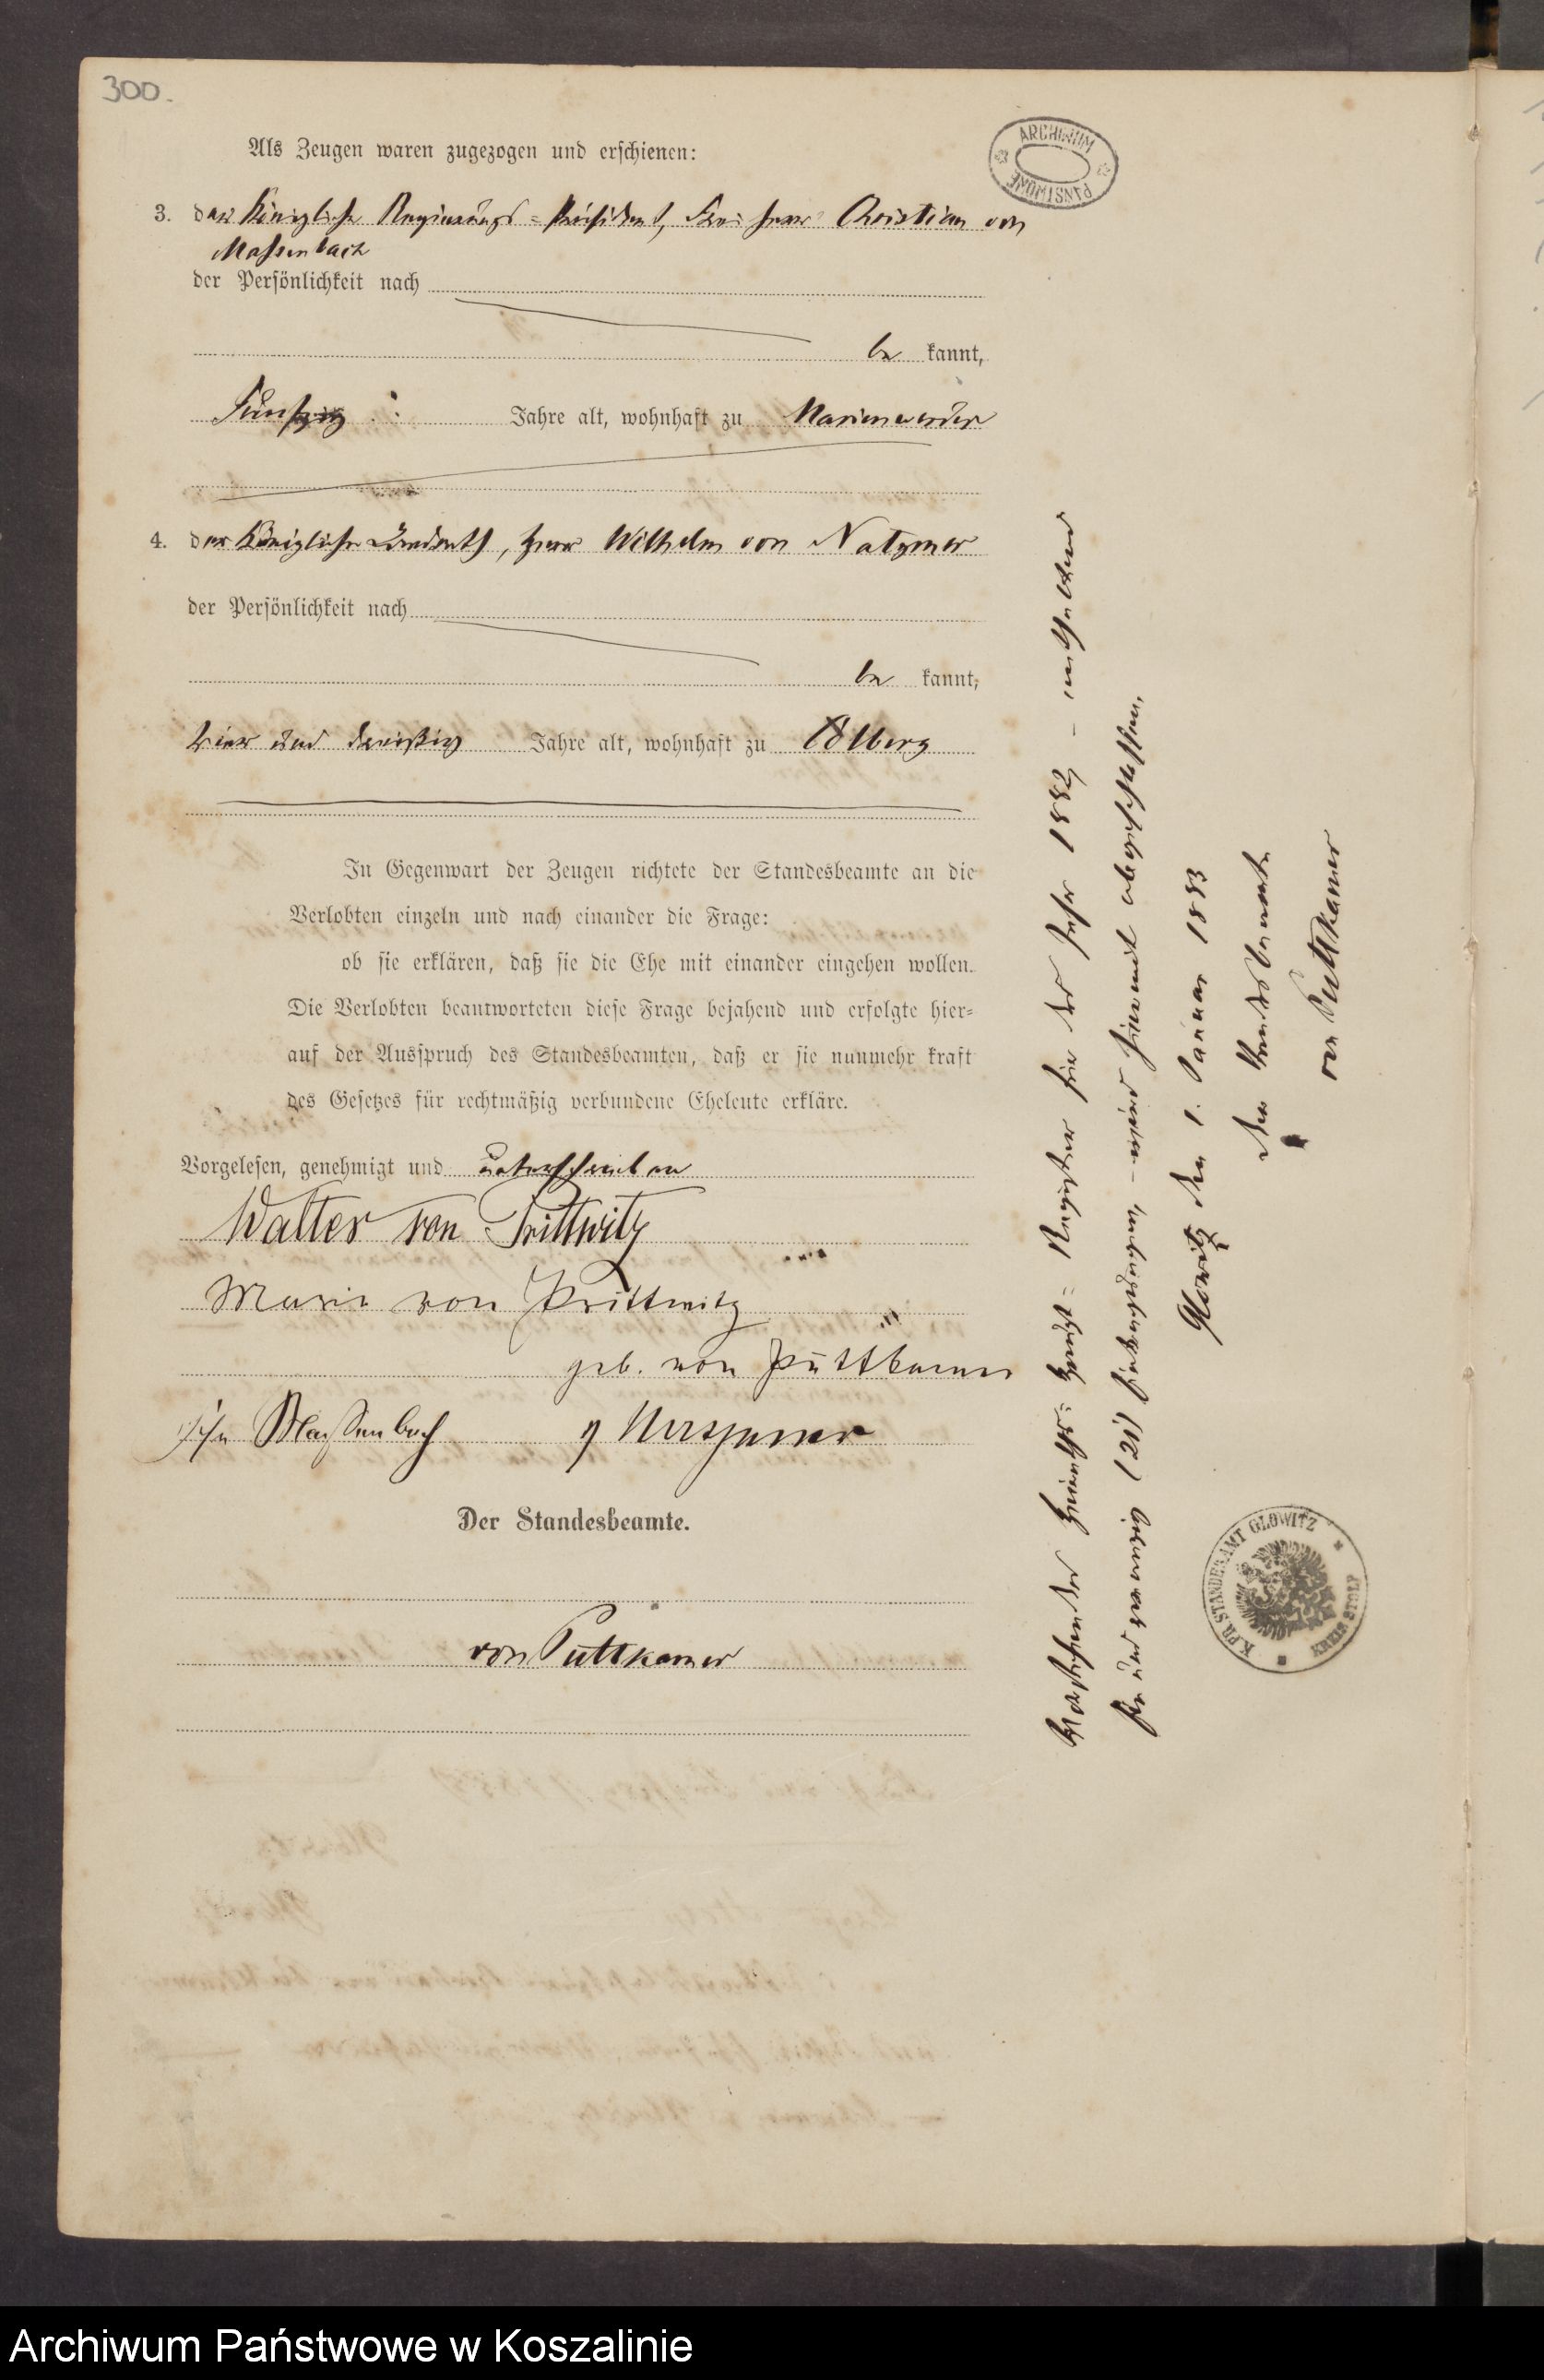 300.
ARCHIWUM PAŃSTWOWE
Als Zeugen waren zugezogen und erschienen:
3. der Königliche Regierungs=Präsident, Freiherr Christian von
Massenbach
der Persönlichkeit nach
be kannt,
Fünfzig Jahre alt, wohnhaft zu Marienwerder
4. der Königliche Landrath, Herr Wilhelm von Natzmer
der Persönlichkeit nach
be kannt,
vier und dreißig Jahre alt, wohnhaft zu Colberg
In Gegenwart der Zeugen richtete der Standesbeamte an die
Verlobten einzeln und nach einander die Frage:
ob sie erklären, daß sie die Ehe mit einander eingehen wollen.
Die Verlobten beantworteten diese Frage bejahend und erfolgte hier=
auf der Ausspruch des Standesbeamten, daß er sie nunmehr kraft
des Gesetzes für rechtmäßig verbundene Eheleute erkläre.
Vorgelesen, genehmigt und unterschrieben
Walter von Prittwitz
Maria von Prittwitz
geb. von Puttkamer
Massenbach
Natzmer
Der Standesbeamte.
von Puttkamer
Vorstehendes Heiraths=Haupt=Register für das Jahr 1882, – enthaltend
ein und zwanzig (21) Eintragungen, – wird hiermit abgeschlossen.
Glowitz den 1. Januar 1883
Der Standesbeamte
von Puttkamer
K. PR. STANDESAMT GLOWITZ
KREIS STOLP
Archiwum Państwowe w Koszalinie